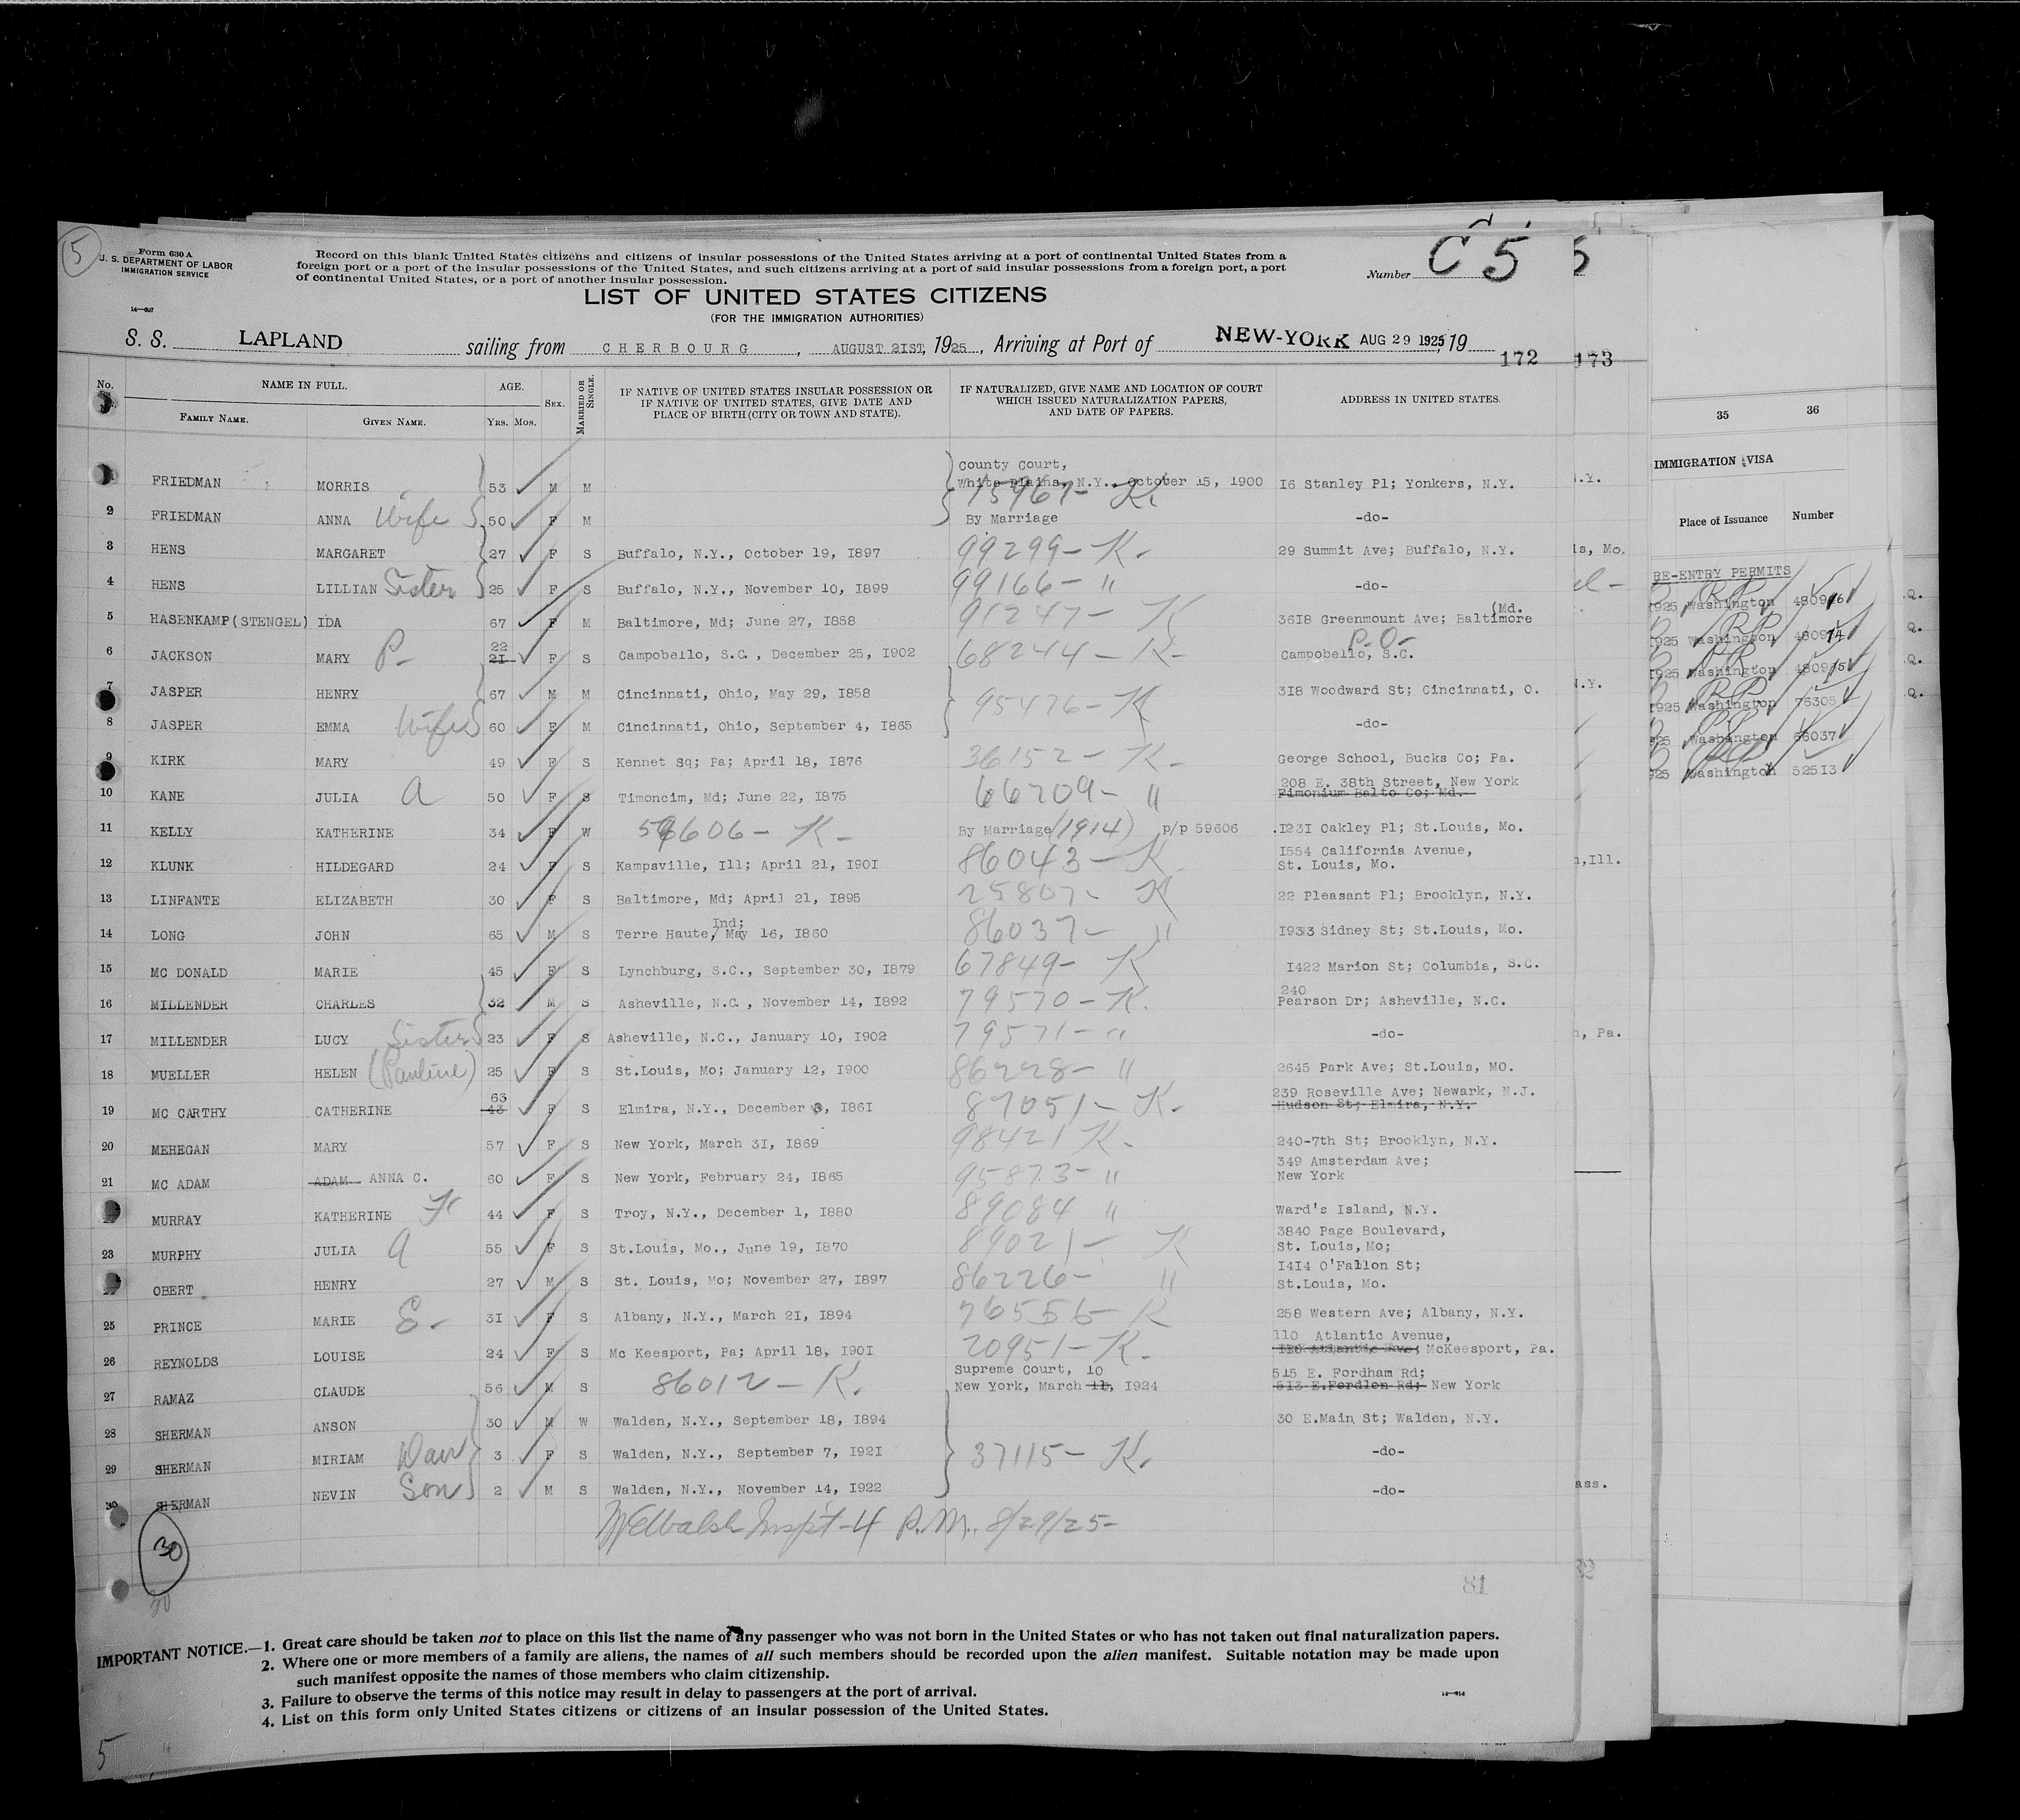 5
Form 630 A
U. S. DEPARTMENT OF LABOR
IMMIGRATION SERVICE
14—607
Record on this blank United States citizens and citizens of insular possessions of the United States arriving at a port of continental United States from a
foreign port or a port of the insular possessions of the United States, and such citizens arriving at a port of said insular possessions from a foreign port, a port
of continental United States, or a port of another insular possession.
Number C 5
5
LIST OF UNITED STATES CITIZENS
(FOR THE IMMIGRATION AUTHORITIES)
S. S. LAPLAND sailing from CHERBOURG, AUGUST 21ST, 1925, Arriving at Port of NEW-YORK AUG 29 1925, 19
172 173
No. NAME IN FULL. AGE. SEX. MARRIED OR SINGLE. IF NATIVE OF UNITED STATES INSULAR POSSESSION OR IF NATIVE OF UNITED STATES, GIVE DATE AND PLACE OF BIRTH (CITY OR TOWN AND STATE). IF NATURALIZED, GIVE NAME AND LOCATION OF COURT WHICH ISSUED NATURALIZATION PAPERS, AND DATE OF PAPERS. ADDRESS IN UNITED STATES.
FAMILY NAME. GIVEN NAME. YRS. MOS.
County Court,
FRIEDMAN MORRIS 53 M M White Plains, N.Y. October 15, 1900 I6 Stanley Pl; Yonkers, N.Y.
15967- K.
2 FRIEDMAN ANNA Wife 50 F M By Marriage -do-
3 HENS MARGARET 27 F S Buffalo, N.Y., October 19, I897 99299- K- 29 Summit Ave; Buffalo, N.Y.
4 HENS LILLIAN Sister 25 F S Buffalo, N.Y., November 10, I899 99166- " -do-
5 HASENKAMP(STENGEL) IDA 67 F M Baltimore, Md; June 27, I858 91247- K 36I8 Greenmount Ave; Baltimore (Md.
6 JACKSON MARY P- 22 21 F S Campobello, S.C., December 25, I902 68244- K- P.O- Campobello, S.C.
7 JASPER HENRY 67 M M Cincinnati, Ohio, May 29, I858 95476- K 3I8 Woodward St; Cincinnati, O.
8 JASPER EMMA Wife 60 F M Cincinnati, Ohio, September 4, I865 -do-
9 KIRK MARY 49 F S Kennet Sq; Pa; April I8, I876 36152- K- George School, Bucks Co; Pa.
208 E. 38th Street, New York
10 KANE JULIA A 50 F S Timoncim, Md; June 22, I875 66709- " Fimonium Balto Co; Md.
11 KELLY KATHERINE 34 F W 59606- K- By Marriage (1914) p/p 59606 .I23I Oakley Pl; St.Louis, Mo.
12 KLUNK HILDEGARD 24 F S Kampsville, Ill; April 21, I90I 86043- K I554 California Avenue,
St. Louis, Mo.
13 LINFANTE ELIZABETH 30 F S Baltimore, Md; April 21, I895 25807- K 22 Pleasant Pl; Brooklyn, N.Y.
14 LONG JOHN 65 M S Terre Haute,/ Ind; May 16, I860 86037- " I933 Sidney St; St.Louis, Mo.
15 MC DONALD MARIE 45 F S Lynchburg, S.C., September 30, I879 67849- K I422 Marion St; Columbia, S.C.
240
16 MILLENDER CHARLES 32 M S Asheville, N.C., November I4, I892 79570- K. Pearson Dr; Asheville, N.C.
17 MILLENDER LUCY Sister 23 F S Asheville, N.C., January 10, I902 79571- " -do-
18 MUELLER HELEN (Pauline) 25 F S St.Louis, Mo; January I2, I900 86228- " 2645 Park Ave; St.Louis, MO.
19 MC CARTHY CATHERINE 63 43 F S Elmira, N.Y., December 8, I86I 87051- K- 239 Roseville Ave; Newark, N.J.
Hudson St; Elmira, N.Y.
20 MEHEGAN MARY 57 F S New York, March 3I, I869 98421 K- 240-7th St; Brooklyn, N.Y.
21 MC ADAM ADAM ANNA C. 60 F S New York, February 24, I865 95873- " 349 Amsterdam Ave;
New York
MURRAY KATHERINE F 44 F S Troy, N.Y., December 1, I880 89084 " Ward's Island, N.Y.
23 MURPHY JULIA A 55 F S St.Louis, Mo., June I9, I870 89021- K 3840 Page Boulevard,
St. Louis, Mo;
OBERT HENRY 27 M S St. Louis, Mo; November 27, I897 86226- " I4I4 O'Fallon St;
St.Louis, Mo.
25 PRINCE MARIE E- 3I F S Albany, N.Y., March 2I, I894 76556- K 258 Western Ave; Albany, N.Y.
110 Atlantic Avenue,
26 REYNOLDS LOUISE 24 F S Mc Keesport, Pa; April I8, I90I 20951- K- Atlantic Ave; McKeesport, Pa.
27 RAMAZ CLAUDE 56 M S 86012- K. Supreme Court, 10
New York, March 11, I924 515 E. Fordham Rd;
513 E.Fordlon Rd; New York
28 SHERMAN ANSON 30 M W Walden, N.Y., September I8, I894 30 E.Main St; Walden, N.Y.
29 SHERMAN MIRIAM Dau 3 F S Walden, N.Y., September 7, I92I 37115- K. -do-
30 SHERMAN NEVIN Son 2 M S Walden, N.Y., November I4, I922 -do-
Inspt-4 P.M. 8/29/25-
30
81
IMPORTANT NOTICE.—1. Great care should be taken not to place on this list the name of any passenger who was not born in the United States or who has not taken out final naturalization papers.
2. Where one or more members of a family are aliens, the names of all such members should be recorded upon the alien manifest. Suitable notation may be made upon
such manifest opposite the names of those members who claim citizenship.
3. Failure to observe the terms of this notice may result in delay to passengers at the port of arrival.
4. List on this form only United States citizens or citizens of an insular possession of the United States.
5
35 36
IMMIGRATION VISA
Place of Issuance Number
RE-ENTRY PERMITS
1925 Washington 480916
1925 Washington 480914
1925 Washington 480915
1925 Washington 76305
925 Washington 66037
925 Washington 52513
N.Y.
ls, Mo.
N.Y.
n,Ill.
n, Pa.
ass.